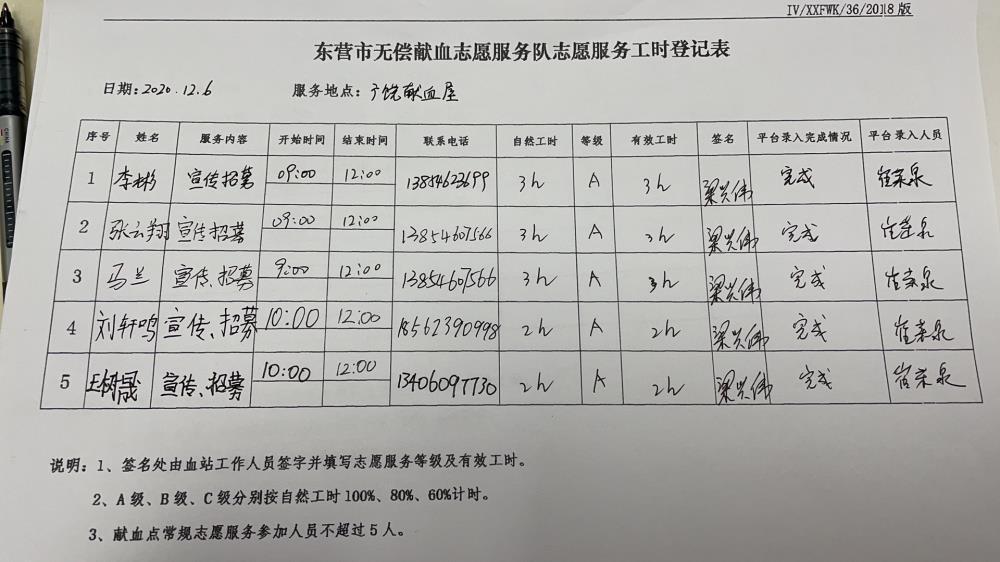 IV/XXFWK/36/2018 版
东营市无偿献血志愿服务队志愿服务工时登记表
日期:2020.12.6 服务地点:广饶献血屋
序号 姓名 服务内容 开始时间 结束时间 联系电话 自然工时 等级 有效工时 签名 平台录入完成情况 平台录入人员
1 李彬 宣传招募 09:00 12:00 13854623699 3h A 3h 梁兴伟 完成 崔荣泉
2 张云翔 宣传、招募 09:00 12:00 13854607566 3h A 3h 梁兴伟 完成 崔荣泉
3 马兰 宣传、招募 9:00 12:00 13854607566 3h A 3h 梁兴伟 完成 崔荣泉
4 刘轩鸣 宣传、招募 10:00 12:00 18562390998 2h A 2h 梁兴伟 完成 崔荣泉
5 王树晟 宣传、招募 10:00 12:00 13406097730 2h A 2h 梁兴伟 完成 崔荣泉
说明:1、签名处由血站工作人员签字并填写志愿服务等级及有效工时。
2、A 级、B 级、C 级分别按自然工时 100%、80%、60%计时。
3、献血点常规志愿服务参加人员不超过 5 人。